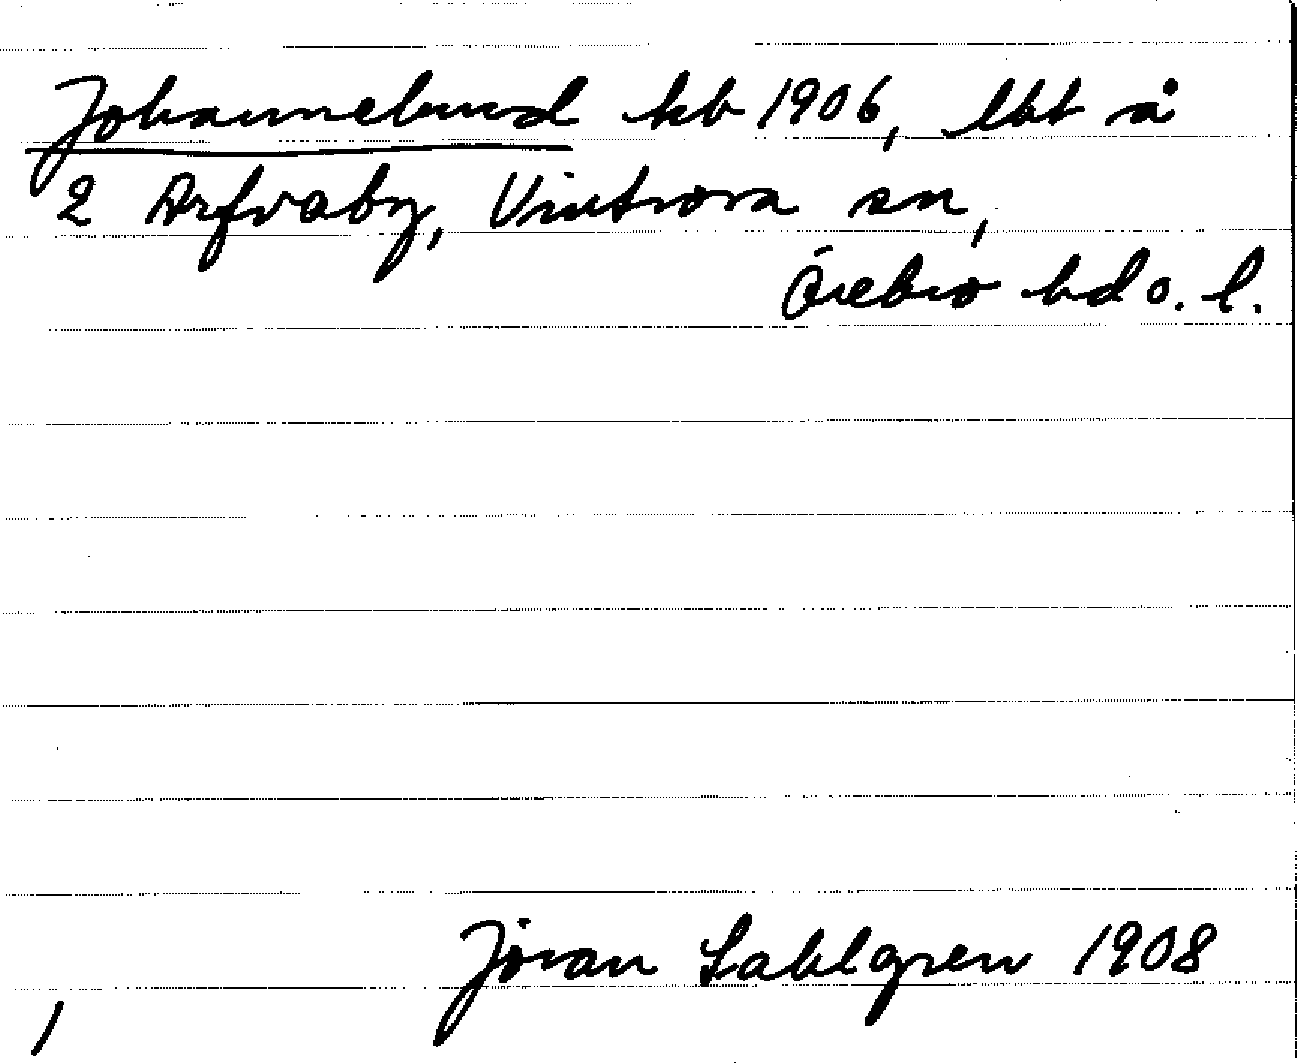 Johannelund kb 1906, lht å
2 Arfvaby, Vintrosa sn,
Örebro hd o. l.
Jöran Sahlgren 1908